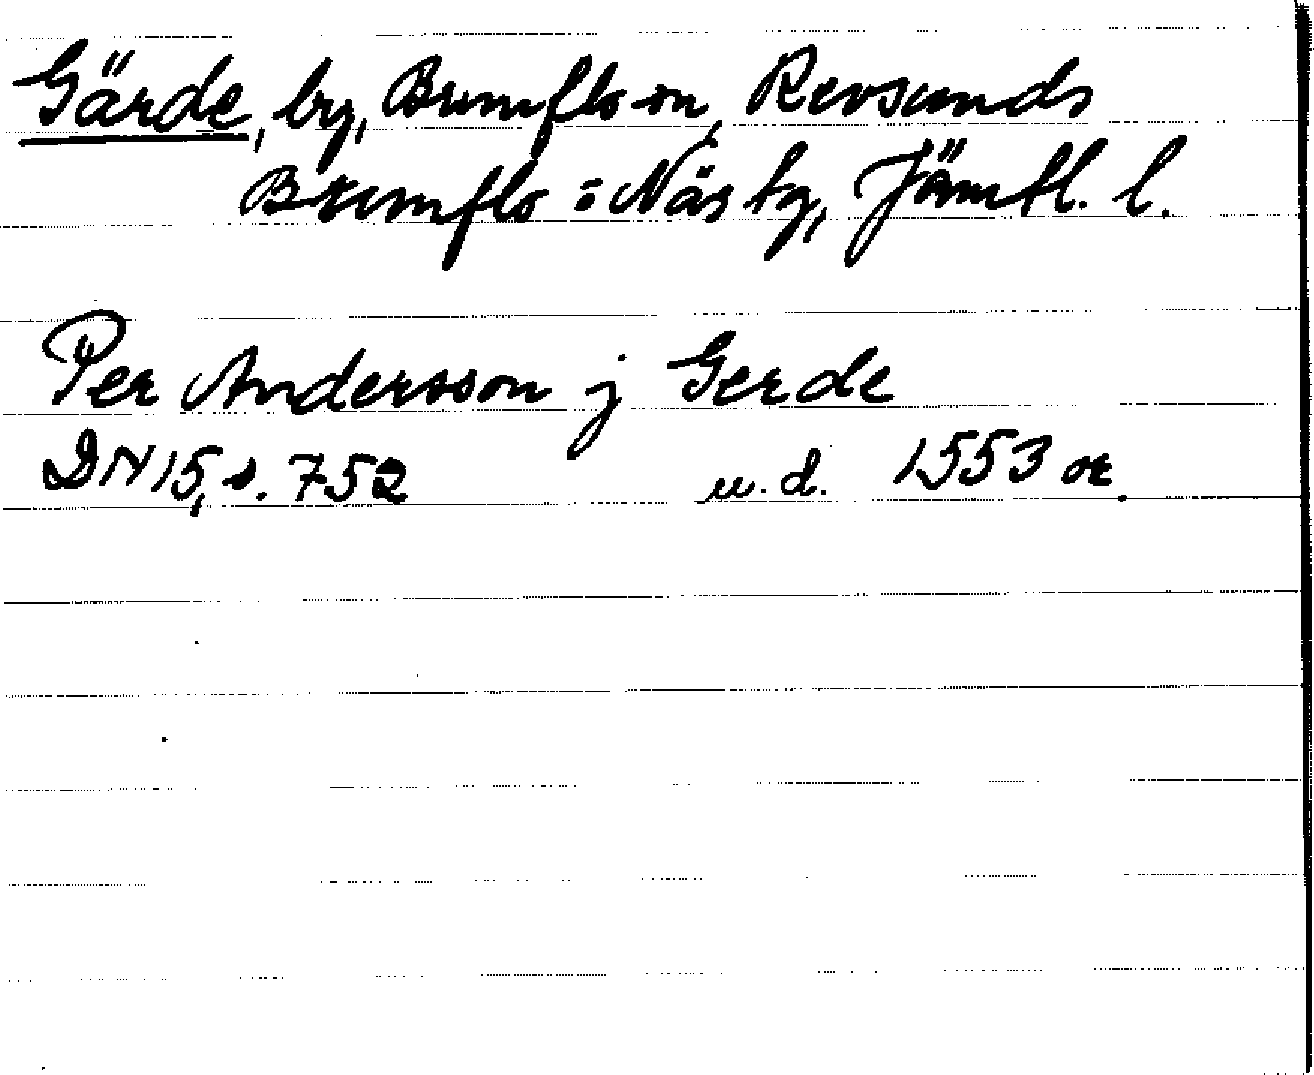 Gärde, by, Brunflo sn, Revsunds
Brunflo o Näs tg, Jämtl. l.
Per Andersson j Gerde
DN 15, s. 752 u.d. 1553 or.